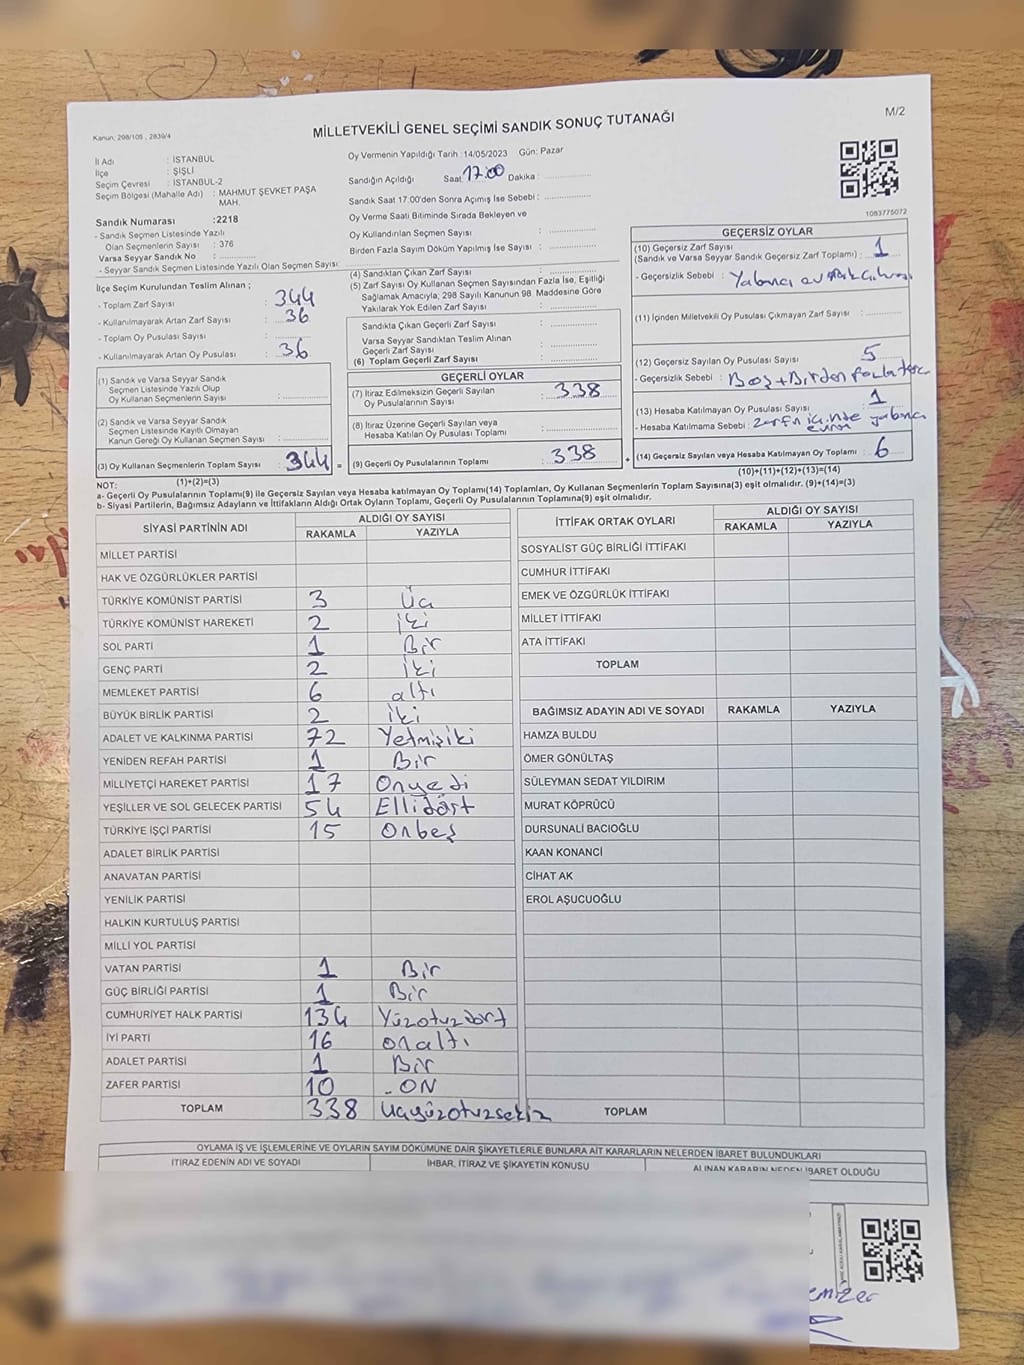 Kanun: 298/105 , 2839/4
MİLLETVEKİLİ GENEL SEÇİMİ SANDIK SONUÇ TUTANAĞI
M/2
İl Adı : İSTANBUL
İlçe : ŞİŞLİ
Seçim Çevresi : İSTANBUL-2
Seçim Bölgesi (Mahalle Adı) : MAHMUT ŞEVKET PAŞA
MAH.
Sandık Numarası :2218
- Sandık Seçmen Listesinde Yazılı
Olan Seçmenlerin Sayısı : 376
Varsa Seyyar Sandık No :
- Seyyar Sandık Seçmen Listesinde Yazılı Olan Seçmen Sayısı:
İlçe Seçim Kurulundan Teslim Alınan ;
- Toplam Zarf Sayısı : 344
- Kullanılmayarak Artan Zarf Sayısı : 36
- Toplam Oy Pusulası Sayısı :
- Kullanılmayarak Artan Oy Pusulası : 36
(1) Sandık ve Varsa Seyyar Sandık
Seçmen Listesinde Yazılı Olup
Oy Kullanan Seçmenlerin Sayısı :
(2) Sandık ve Varsa Seyyar Sandık
Seçmen Listesinde Kayıtlı Olmayan
Kanun Gereği Oy Kullanan Seçmen Sayısı :
(3) Oy Kullanan Seçmenlerin Toplam Sayısı : 344 =
(1)+(2)=(3)
Oy Vermenin Yapıldığı Tarih :14/05/2023 Gün: Pazar
Sandığın Açıldığı Saat: 17:00 Dakika :
Sandık Saat 17.00'den Sonra Açımış İse Sebebi :
Oy Verme Saati Bitiminde Sırada Bekleyen ve
Oy Kullandırılan Seçmen Sayısı :
Birden Fazla Sayım Döküm Yapılmış İse Sayısı :
(4) Sandıktan Çıkan Zarf Sayısı :
(5) Zarf Sayısı Oy Kullanan Seçmen Sayısından Fazla İse, Eşitliği
Sağlamak Amacıyla, 298 Sayılı Kanunun 98. Maddesine Göre
Yakılarak Yok Edilen Zarf Sayısı :
Sandıkta Çıkan Geçerli Zarf Sayısı :
Varsa Seyyar Sandıktan Teslim Alınan
Geçerli Zarf Sayısı :
(6) Toplam Geçerli Zarf Sayısı :
GEÇERLİ OYLAR
(7) İtiraz Edilmeksizin Geçerli Sayılan
Oy Pusulalarının Sayısı : 338
(8) İtiraz Üzerine Geçerli Sayılan veya
Hesaba Katılan Oy Pusulası Toplamı :
(9) Geçerli Oy Pusulalarının Toplamı : 338 +
1083775072
GEÇERSİZ OYLAR
(10) Geçersiz Zarf Sayısı
(Sandık ve Varsa Seyyar Sandık Geçersiz Zarf Toplamı) : 1
- Geçersizlik Sebebi : Yabancı
(11) İçinden Milletvekili Oy Pusulası Çıkmayan Zarf Sayısı :
(12) Geçersiz Sayılan Oy Pusulası Sayısı : 5
- Geçersizlik Sebebi : Boş+Birden fazla
(13) Hesaba Katılmayan Oy Pusulası Sayısı : 1
- Hesaba Katılmama Sebebi : zarfın içinde yabancı
evrak
(14) Geçersiz Sayılan veya Hesaba Katılmayan Oy Toplamı : 6
(10)+(11)+(12)+(13)=(14)
NOT:
a- Geçerli Oy Pusulalarının Toplamı(9) ile Geçersiz Sayılan veya Hesaba katılmayan Oy Toplamı(14) Toplamları, Oy Kullanan Seçmenlerin Toplam Sayısına(3) eşit olmalıdır. (9)+(14)=(3)
b- Siyasi Partilerin, Bağımsız Adayların ve İttifakların Aldığı Ortak Oyların Toplamı, Geçerli Oy Pusulalarının Toplamına(9) eşit olmalıdır.
SİYASİ PARTİNİN ADI ALDIĞI OY SAYISI
RAKAMLA YAZIYLA
MİLLET PARTİSİ
HAK VE ÖZGÜRLÜKLER PARTİSİ
TÜRKİYE KOMÜNİST PARTİSİ 3 Üç
TÜRKİYE KOMÜNİST HAREKETİ 2 iki
SOL PARTİ 1 Bir
GENÇ PARTİ 2 iki
MEMLEKET PARTİSİ 6 altı
BÜYÜK BİRLİK PARTİSİ 2 iki
ADALET VE KALKINMA PARTİSİ 72 Yetmişiki
YENİDEN REFAH PARTİSİ 1 Bir
MİLLİYETÇİ HAREKET PARTİSİ 17 Onyedi
YEŞİLLER VE SOL GELECEK PARTİSİ 54 Ellidört
TÜRKİYE İŞÇİ PARTİSİ 15 Onbeş
ADALET BİRLİK PARTİSİ
ANAVATAN PARTİSİ
YENİLİK PARTİSİ
HALKIN KURTULUŞ PARTİSİ
MİLLİ YOL PARTİSİ
VATAN PARTİSİ 1 Bir
GÜÇ BİRLİĞİ PARTİSİ 1 Bir
CUMHURİYET HALK PARTİSİ 134 Yüzotuzdört
İYİ PARTİ 16 onaltı
ADALET PARTİSİ 1 Bir
ZAFER PARTİSİ 10 ON
TOPLAM 338 üçyüzotuzsekiz
İTTİFAK ORTAK OYLARI ALDIĞI OY SAYISI
RAKAMLA YAZIYLA
SOSYALİST GÜÇ BİRLİĞİ İTTİFAKI
CUMHUR İTTİFAKI
EMEK VE ÖZGÜRLÜK İTTİFAKI
MİLLET İTTİFAKI
ATA İTTİFAKI
TOPLAM
BAĞIMSIZ ADAYIN ADI VE SOYADI RAKAMLA YAZIYLA
HAMZA BULDU
ÖMER GÖNÜLTAŞ
SÜLEYMAN SEDAT YILDIRIM
MURAT KÖPRÜCÜ
DURSUNALİ BACIOĞLU
KAAN KONANCİ
CİHAT AK
EROL AŞUCUOĞLU
TOPLAM
OYLAMA İŞ VE İŞLEMLERİNE VE OYLARIN SAYIM DÖKÜMÜNE DAİR ŞİKAYETLERLE BUNLARA AİT KARARLARIN NELERDEN İBARET BULUNDUKLARI
İTİRAZ EDENİN ADI VE SOYADI İHBAR, İTİRAZ VE ŞİKAYETİN KONUSU ALINAN KARARIN NEDEN İBARET OLDUĞU